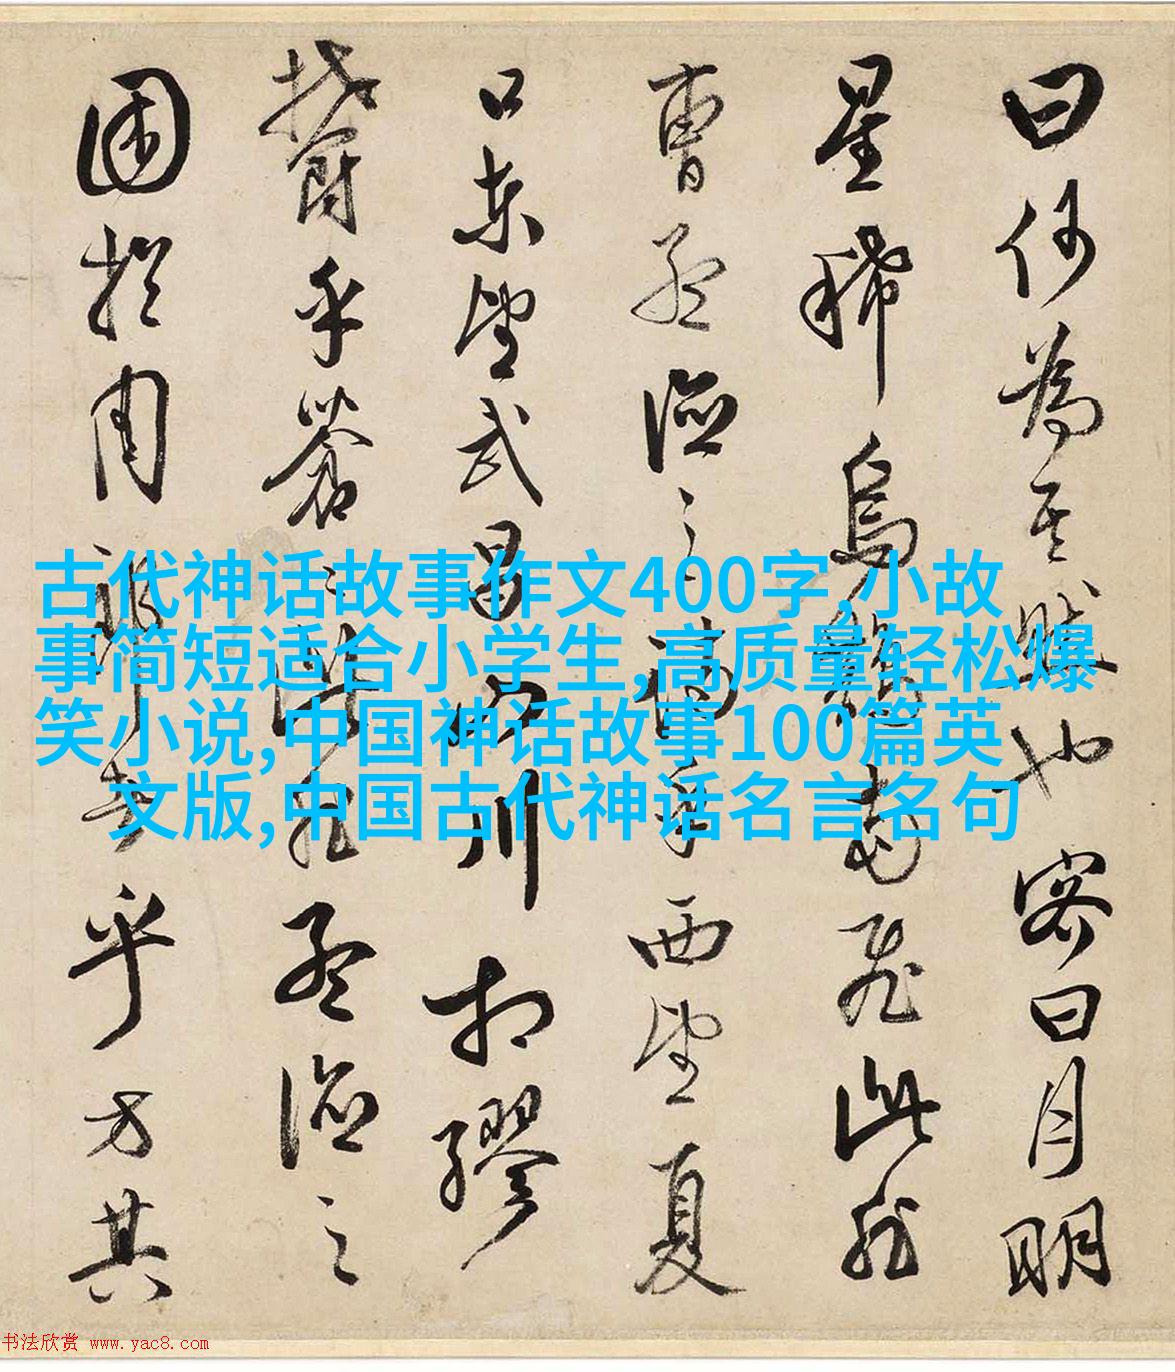 曰何為其然也客曰月明
星稀烏鵲南飛此非
曹孟德之詩乎西望夏
口東望武昌山川相繆
鬱乎蒼〻此非孟德之
困於周郎者乎方其
古代神话故事作文400字,小故
事简短适合小学生,高质量轻松爆
笑小说,中国神话故事100篇英
文版,中国古代神话名言名句
书法欣赏 www.yac8.com